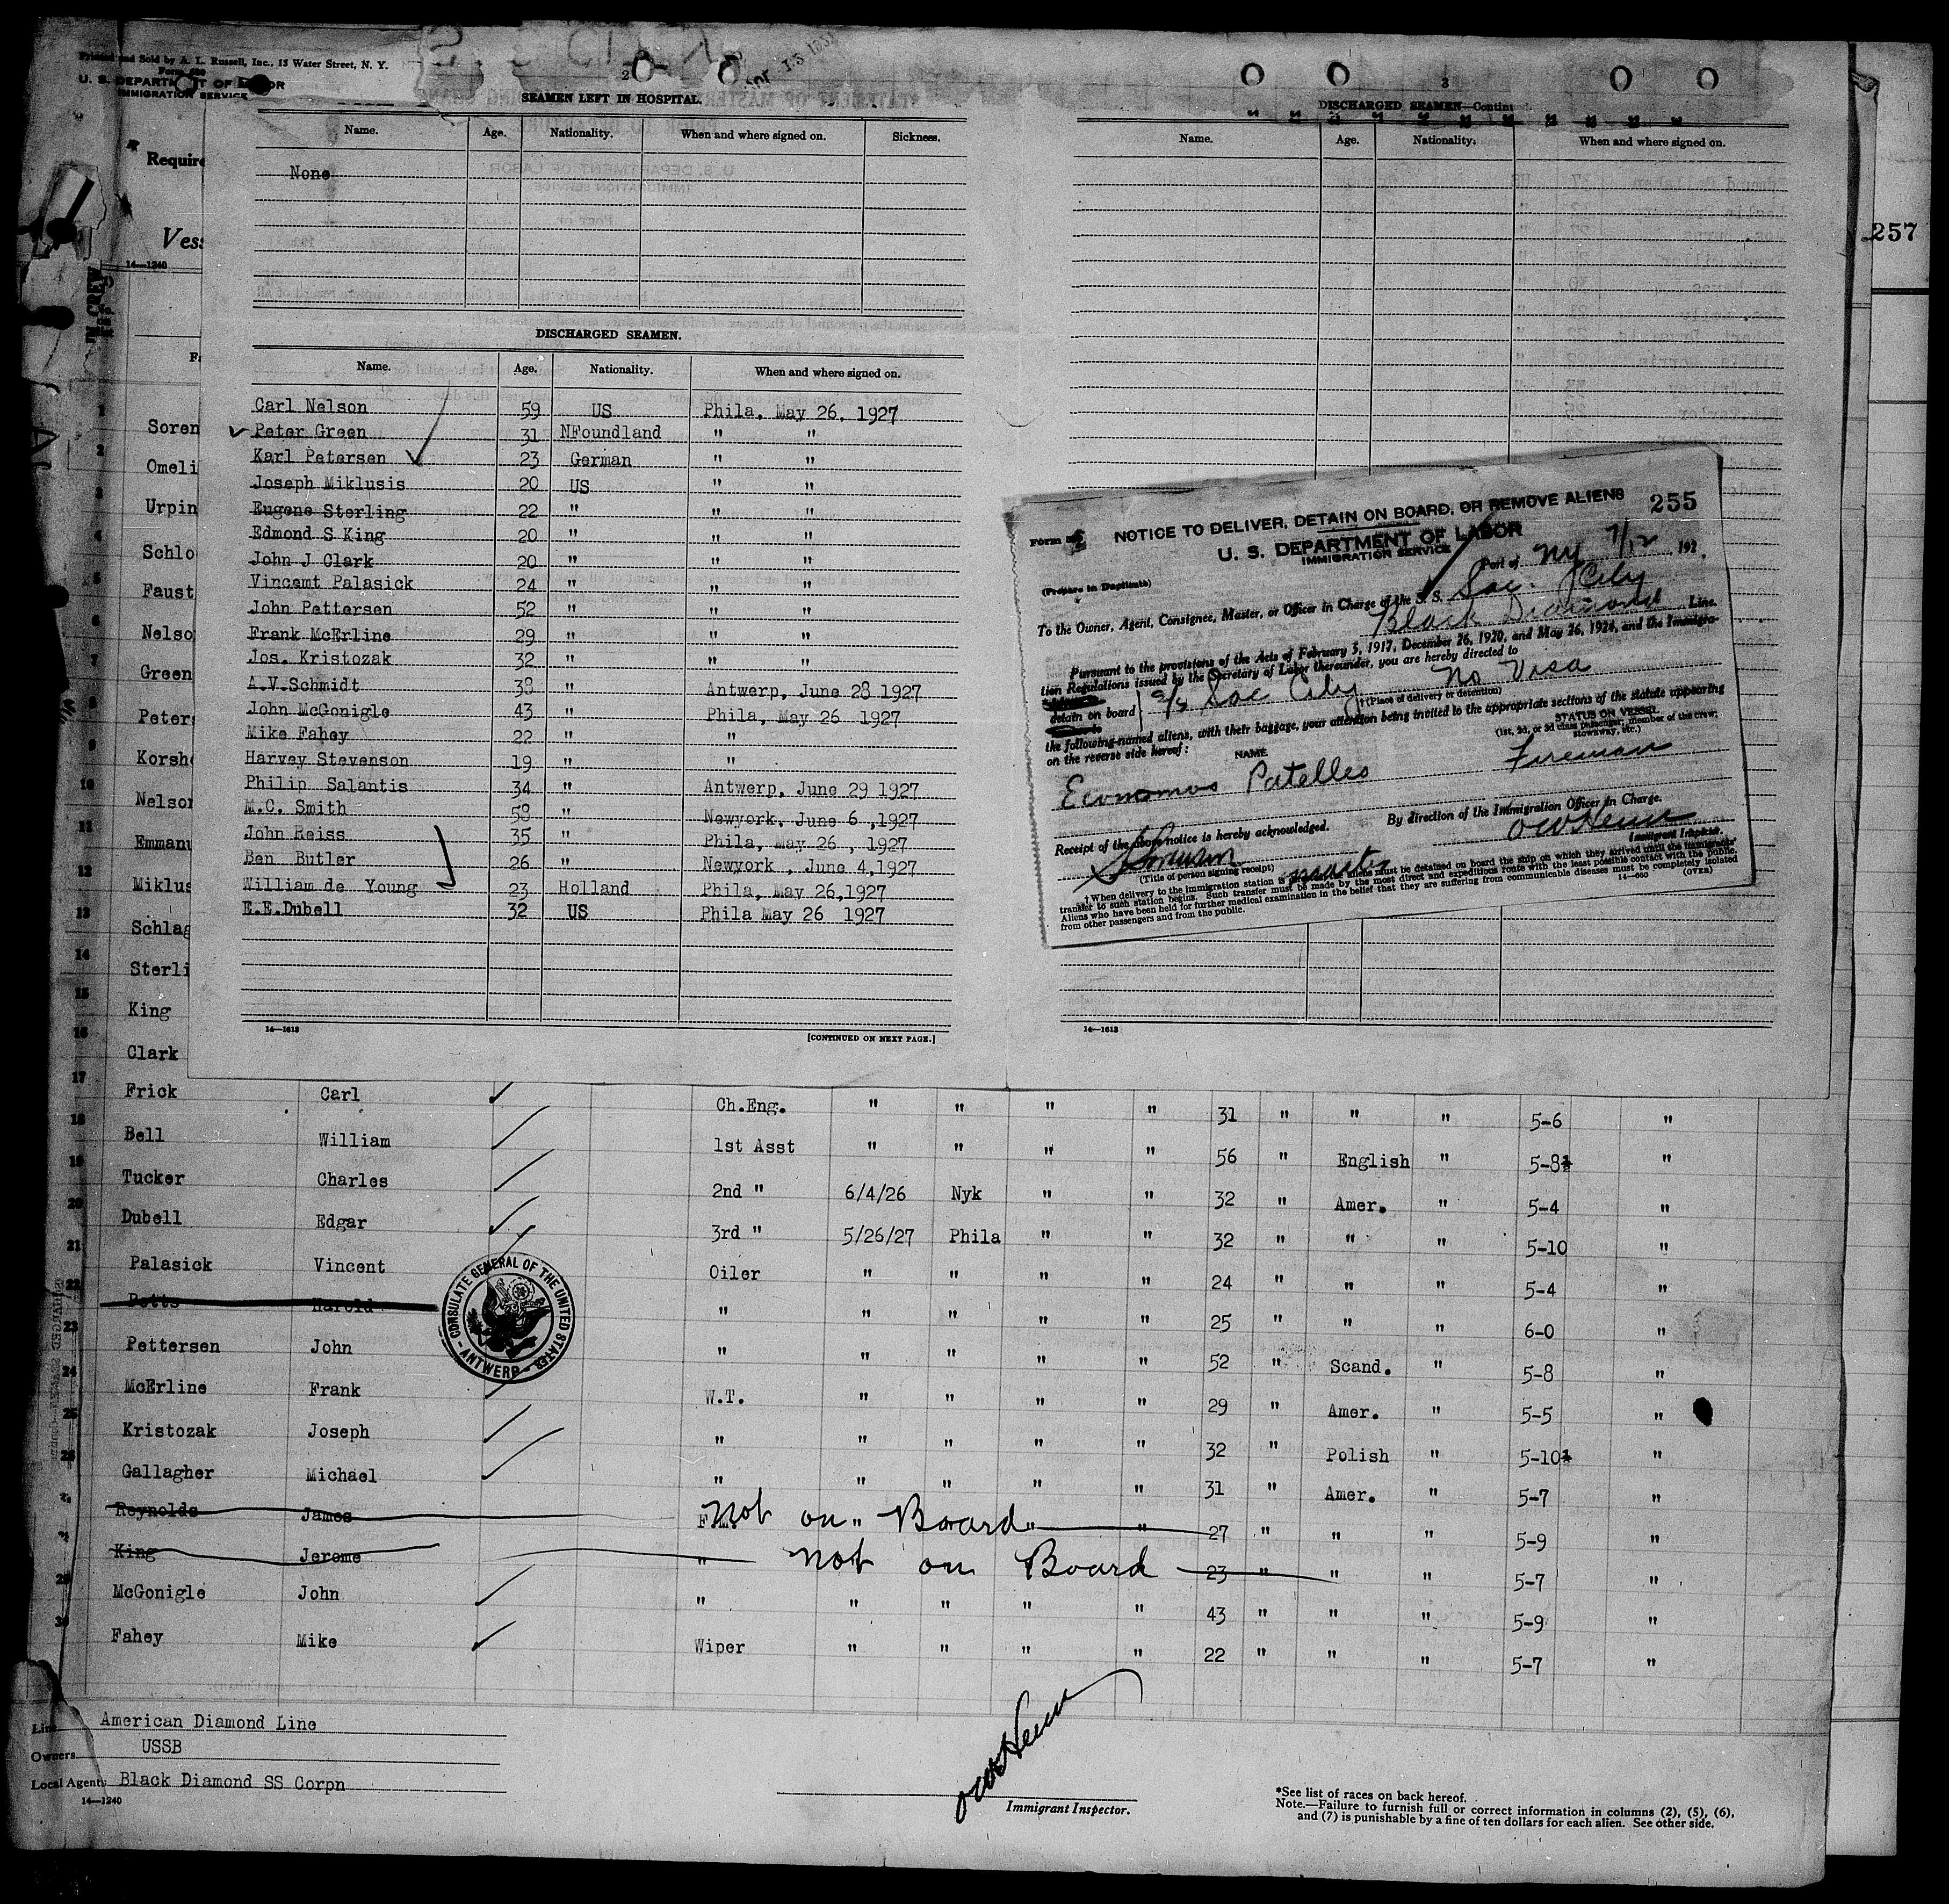 Printed and Sold by A. L. Russell, Inc., 15 Water Street, N. Y.
U. S. DEPARTMENT OF LABOR
IMMIGRATION SERVICE
Require
Vess
14—1240
257
2
SEAMEN LEFT IN HOSPITAL.
Name. Age. Nationality. When and where signed on. Sickness.
None
DISCHARGED SEAMEN.
Name. Age. Nationality. When and where signed on.
Carl Nelson 59 US Phila, May 26, 1927
Peter Green 31 NFoundland " "
Karl Petersen 23 German " "
Joseph Miklusis 20 US " "
Eugene Sterling 22 " " "
Edmond S King 20 " " "
John J Clark 20 " " "
Vincemt Palasick 24 " " "
John Pettersen 52 " " "
Frank McErline 29 " " "
Jos. Kristozak 32 " " "
A.V.Schmidt 38 " Antwerp, June 28 1927
John McGonigle 43 " Phila, May 26 1927
Mike Fahey 22 " "
Harvey Stevenson 19 " "
Philip Salantis 34 " Antwerp, June 29 1927
M.C. Smith 58 " Newyork, June 6 ,1927
John Reiss 35 " Phila, May 26 , 1927
Ben Butler 26 " Newyork , June 4,1927
William de Young 23 Holland Phila, May 26,1927
E.E.Dubell 32 US Phila May 26 1927
14—1613
[CONTINUED ON NEXT PAGE.]
3
DISCHARGED SEAMEN—Contin
Name. Age. Nationality. When and where signed on.
14—1613
255
Form
NOTICE TO DELIVER, DETAIN ON BOARD, OR REMOVE ALIENS
U. S. DEPARTMENT OF LABOR
IMMIGRATION SERVICE
(Prepare in Duplicate)
Port of NY 7/12, 192 .
To the Owner, Agent, Consignee, Master, or Officer in Charge of the S. S. Sac. City
Black Diamond Line.
Pursuant to the provisions of the Acts of February 5, 1917, December 26, 1920, and May 26, 1924, and the Immigra-
tion Regulations issued by the Secretary of Labor thereunder, you are hereby directed to
detain on board } s/s Sac City No Visa
†(Place of delivery or detention)
the following-named aliens, with their baggage, your attention being invited to the appropriate sections of the statute appearing
on the reverse side hereof:
NAME
STATUS ON VESSEL
(1st, 2d, or 3d class passenger, member of the crew, stowaway, etc.)
Economos Patelles Fireman
By direction of the Immigration Officer in Charge.
Receipt of the above notice is hereby acknowledged.
Immigrant Inspector.
master
(Title of person signing receipt)
†When delivery to the immigration station is aliens must be detained on board the ship on which they arrived until the immigrants'
transfer to such station begins. Such transfer must be made by the most direct and expeditious route with the least possible contact with the public.
Aliens who have been held for further medical examination in the belief that they are suffering from communicable diseases must be completely isolated
from other passengers and from the public.
14—660 (OVER)
1 Soren
2 Omeli
3 Urpin
4 Schlo
5 Faust
6 Nelso
7 Green
8 Peters
9 Korsh
10 Nelson
11 Emmanu
12 Miklus
13 Schlag
14 Sterli
15 King
16 Clark
17 Frick Carl Ch.Eng. " " " " 31 " " " 5-6 "
18 Bell William 1st Asst " " " " 56 " English " 5-8½ "
19 Tucker Charles 2nd " 6/4/26 Nyk " " 32 " Amer. " 5-4 "
20 Dubell Edgar 3rd " 5/26/27 Phila " " 32 " " " 5-10 "
21 Palasick Vincent Oiler " " " " 24 " " " 5-4 "
22 Potts Harold " " " " " 25 " " " 6-0 "
23 Pettersen John " " " " " 52 " Scand. " 5-8 "
24 McErline Frank W.T. " " " " 29 " Amer. " 5-5 "
25 Kristozak Joseph " " " " " 32 " Polish " 5-10½ "
26 Gallagher Michael " " " " " 31 " Amer. " 5-7 "
Reynolds James F.M. Not on Board 27 " " " 5-9 "
King Jerome " Not on Board 23 " " " 5-7 "
29 McGonigle John " " " " " 43 " " " 5-9 "
30 Fahey Mike Wiper " " " " 22 " " " 5-7 "
CONSULATE GENERAL OF THE UNITED STATES
ANTWERP
Line American Diamond Line
Owners USSB
Local Agents Black Diamond SS Corpn
14—1240
Immigrant Inspector.
*See list of races on back hereof.
Note.—Failure to furnish full or correct information in columns (2), (5), (6),
and (7) is punishable by a fine of ten dollars for each alien. See other side.